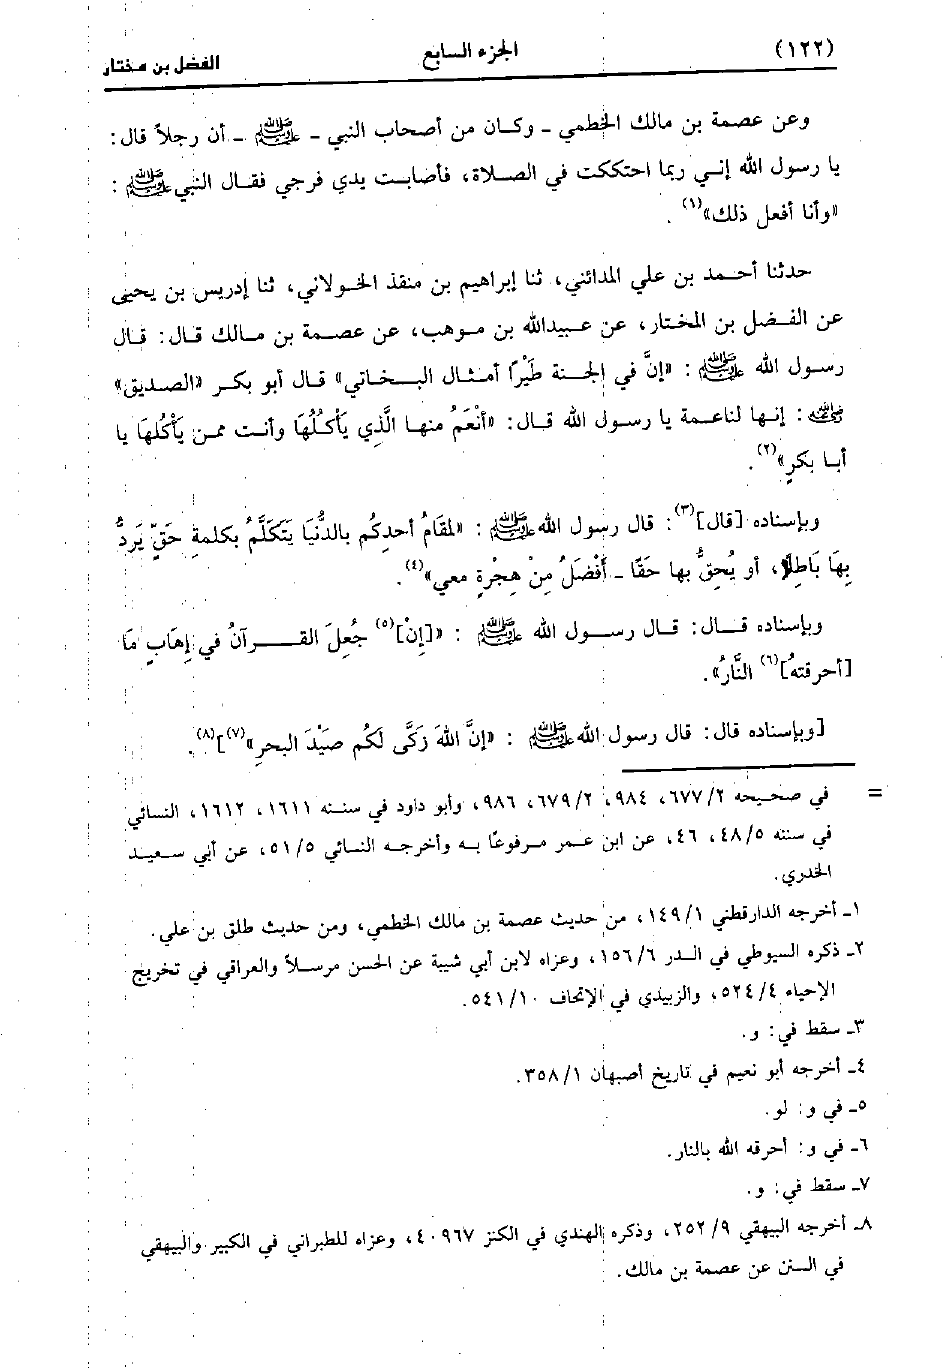 (١٢٢) الجزء السابع الفضل بن مختار
وعن عصمة بن مالك الخطمي ـ وكان من أصحاب النبي ـ ﷺ ـ أن رجلاً قال:
يا رسول الله إني ربما احتككت في الصلاة، فأصابت يدي فرجي فقال النبي ﷺ :
«وأنا أفعل ذلك»(١) .
حدثنا أحمد بن علي المدائني، ثنا إبراهيم بن منقذ الخولاني، ثنا إدريس بن يحيى
عن الفضل بن المختار، عن عبيدالله بن موهب، عن عصمة بن مالك قال: قال
رسول الله ﷺ : «إنَّ في الجنة طَيْرًا أمثال البخاتي» قال أبو بكر «الصديق»
رضي الله عنه : إنها لناعمة يا رسول الله قال: «أنْعَمُ منها الَّذِي يَأْكُلُهَا وأنت ممن يَأْكُلهَا يا
أبا بكرٍ»(٢).
وبإسناده [قال](٣): قال رسول الله ﷺ : «لمقَامُ أحدِكُم بالدُّنْيَا يَتَكَلَّمُ بكلمةِ حَقٍّ يَردُّ
بِهَا بَاطِلًا، أو يُحِقُّ بها حَقًا ـ أفْضَلُ مِنْ هِجْرةٍ معي»(٤).
وبإسناده قال: قال رسول الله ﷺ : «[إنْ](٥) جُعِلَ القرآنُ في إهَابٍ مَا
[أحرقتهُ](٦) النَّارُ».
[وبإسناده قال: قال رسول الله ﷺ : «إنَّ اللهَ زَكَّى لَكُم صَيْدَ البحرِ»(٧)](٨).
= في صحيحه ٢/ ٦٧٧، ٩٨٤، ٢/ ٦٧٩، ٩٨٦، وأبو داود في سننه ١٦١١، ١٦١٢، النسائي
في سننه ٥/ ٤٨، ٤٦، عن ابن عمر مرفوعًا به وأخرجه النسائي ٥/ ٥١، عن أبي سعيد
الخدري.
١ـ أخرجه الدارقطني ١/ ١٤٩، من حديث عصمة بن مالك الخطمي، ومن حديث طلق بن علي.
٢ـ ذكره السيوطي في الدر ٦/ ١٥٦، وعزاه لابن أبي شيبة عن الحسن مرسلاً والعراقي في تخريج
الإحياء ٤/ ٥٢٤، والزبيدي في الإتحاف ١٠/ ٥٤١.
٣ـ سقط في: و.
٤ـ أخرجه أبو نعيم في تاريخ أصبهان ١/ ٣٥٨.
٥ـ في و: لو.
٦ـ في و: أحرقه الله بالنار.
٧ـ سقط في: و.
٨ـ أخرجه البيهقي ٩/ ٢٥٢، وذكره الهندي في الكنز ٤٠٩٦٧، وعزاه للطبراني في الكبير والبيهقي
في السنن عن عصمة بن مالك.